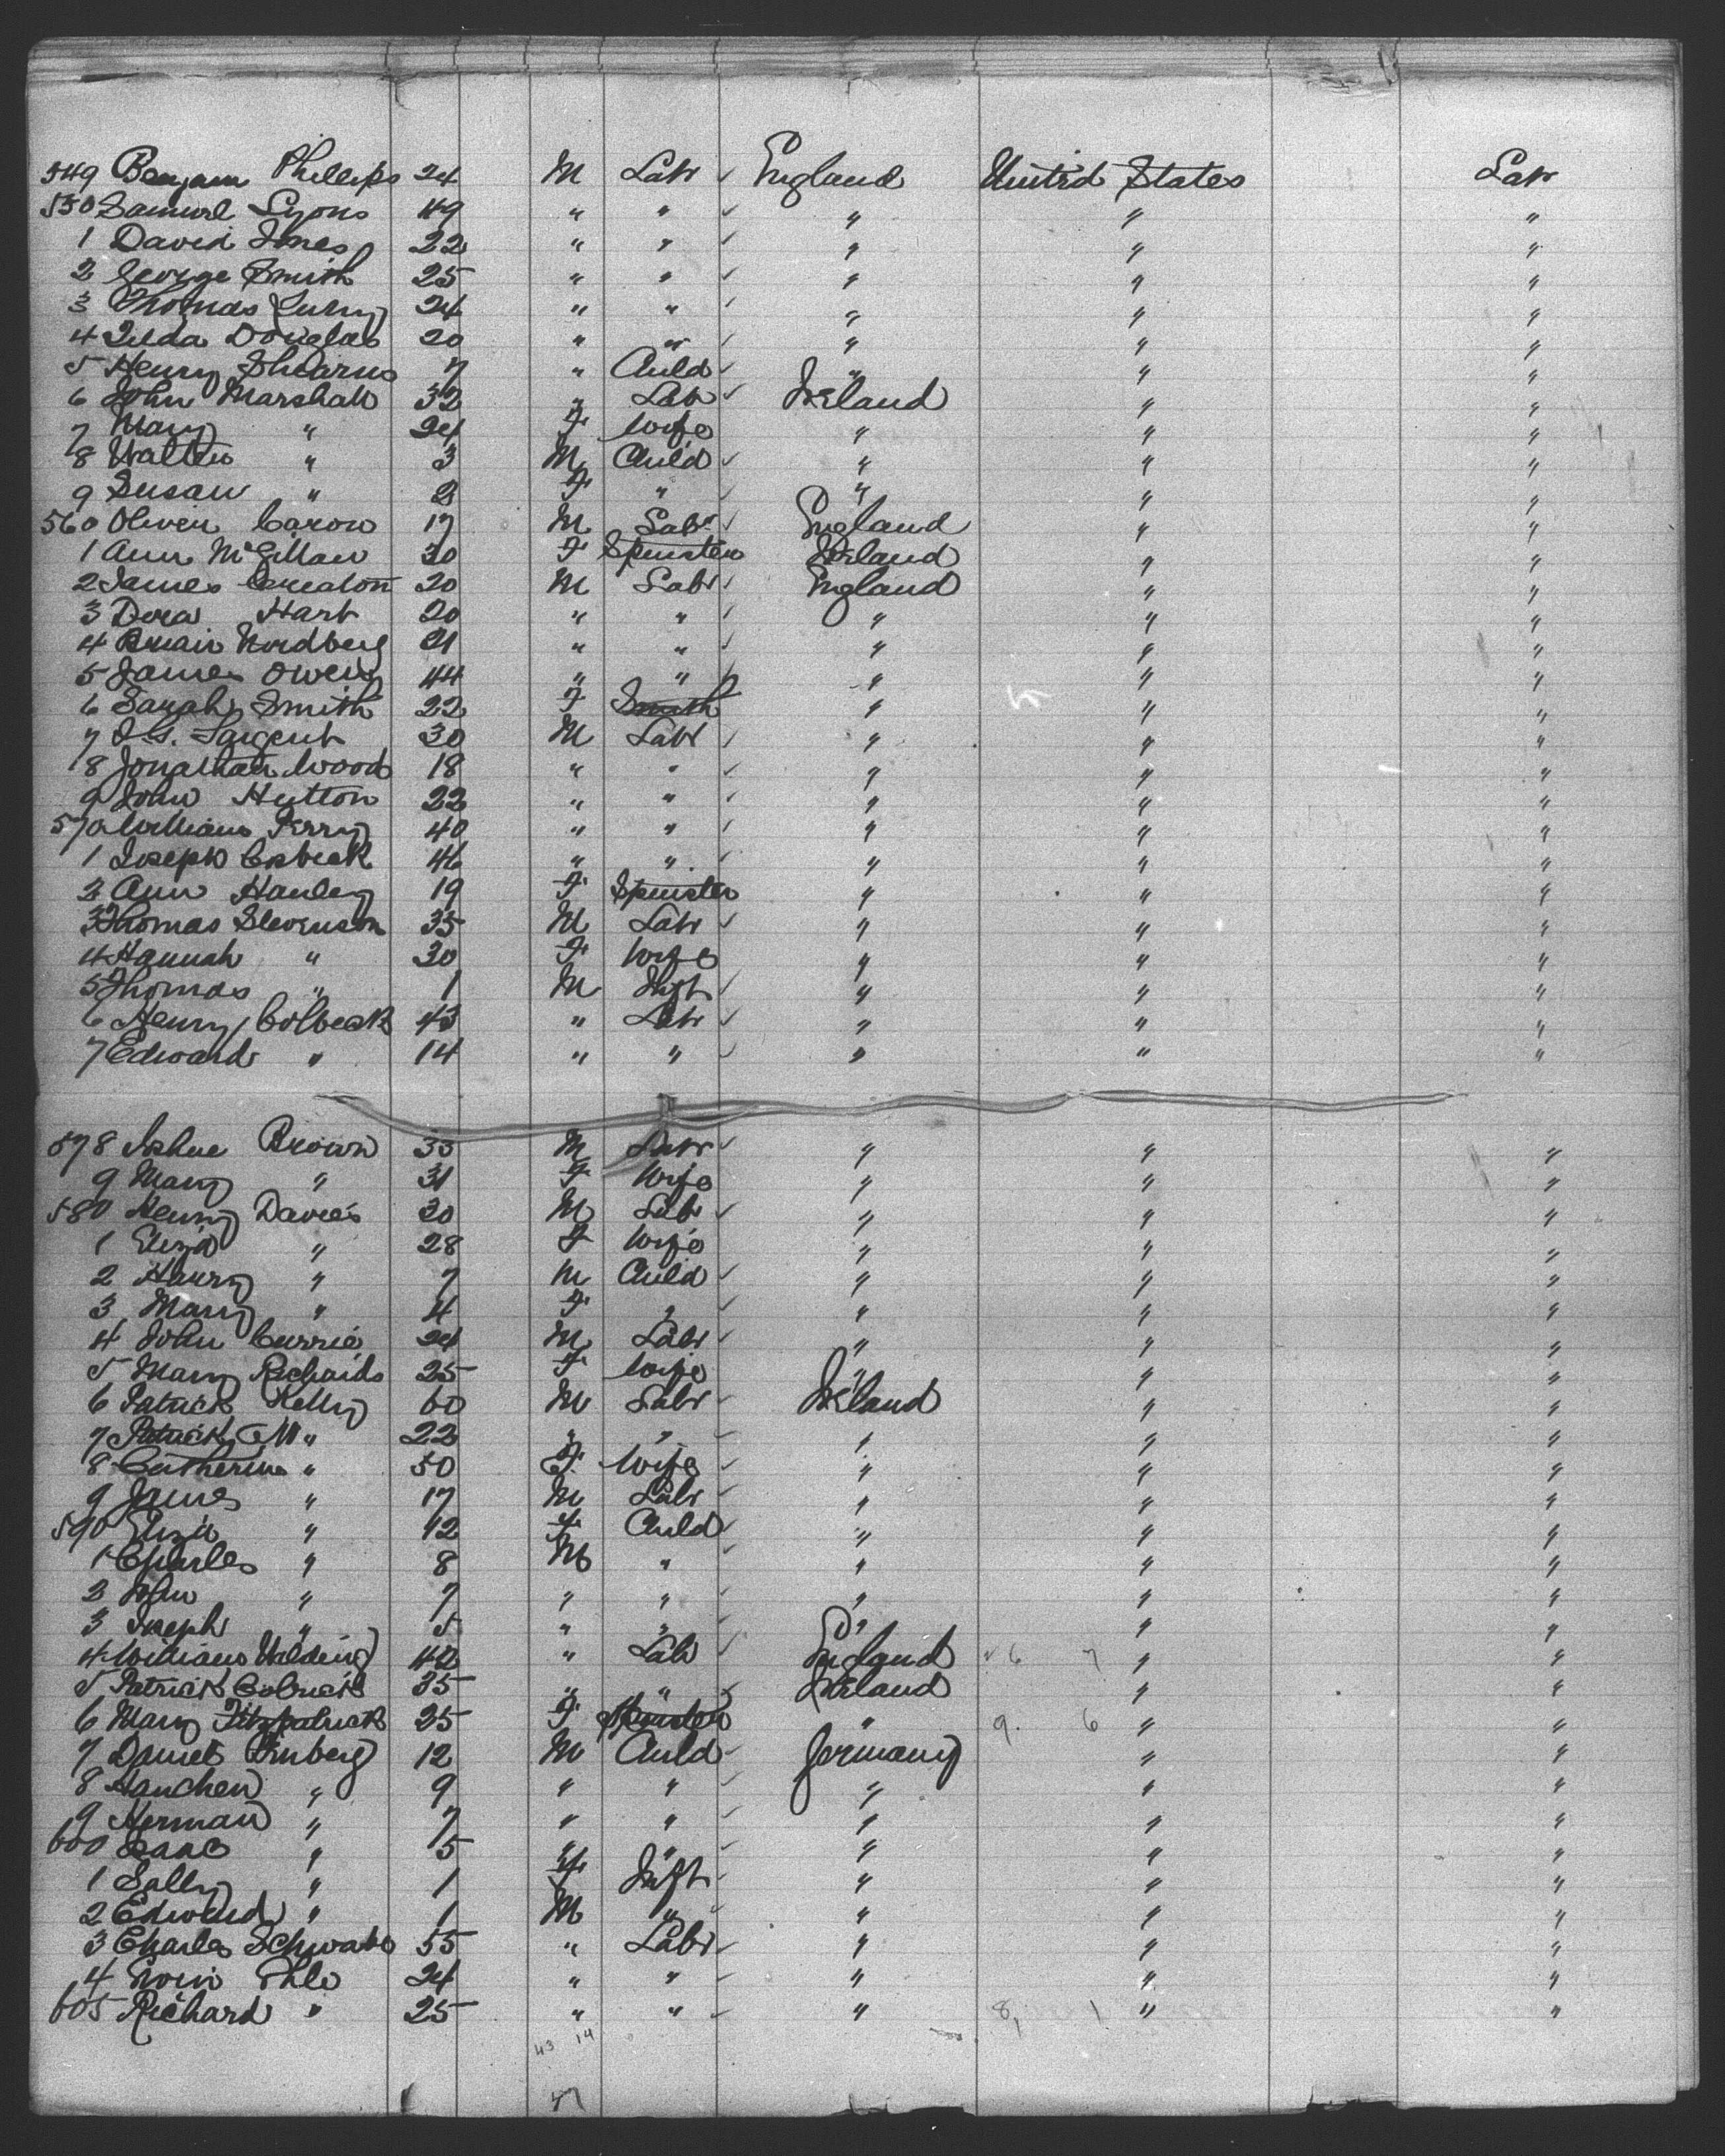 549 Benjam Phillips 24 M Labr ✓ England United States Labr
550 Samuel Lyons 49 " " ✓ " " "
1 David Jones 22 " " ✓ " " "
2 George Smith 25 " " ✓ " " "
3 Thomas 24 " " ✓ " " "
4 Douglas 20 " " ✓ " " "
5 Henry Shearns 7 " Child ✓ " " "
6 John Marshall 32 " Labr ✓ Ireland " "
7 Mary " 24 F Wife " " "
8 Walter " 3 M Child ✓ " " "
9 Susan " 2 F " ✓ " " "
560 Oliver Caron 17 M Labr ✓ England " "
1 Ann McGillan 30 F Spinster Ireland " "
2 James 20 M Labr ✓ England " "
3 Dora Hart 20 " " ✓ " " "
4 Nordberg 21 " " ✓ " " "
5 James Owens 44 " " ✓ " " "
6 Sarah Smith 22 F Smith " " "
7 Sargent 30 M Labr ✓ " " "
8 Jonathan Wood 18 " " ✓ " " "
9 John Hutton 22 " " ✓ " " "
570 William Perry 40 " " ✓ " " "
1 Joseph 46 " " ✓ " " "
2 Ann Hanley 19 F Spinster " " "
3 Thomas Stevenson 35 M Labr ✓ " " "
4 Hannah " 30 F Wife " " "
5 Thomas " 1 M Inft ✓ " " "
6 Henry Colbeck 43 " Labr ✓ " " "
7 Edward " 14 " " ✓ " " "
578 Brown 33 M Labr ✓ " " "
9 Mary " 31 F Wife " " "
580 Henry Davies 30 M Labr ✓ " " "
1 Eliza " 28 F Wife " " "
2 Harry " 7 M Child ✓ " " "
3 Mary " 4 F " ✓ " " "
4 John Currie 24 M Labr ✓ " " "
5 Mary Richards 25 F Wife " " "
6 Patrick Kelly 60 M Labr ✓ Ireland " "
7 Patrick " 22 " " ✓ " " "
8 Catherine " 50 F Wife ✓ " " "
9 James " 17 M Labr ✓ " " "
590 Eliza " 12 F Child ✓ " " "
1 Charles " 8 M " ✓ " " "
2 John " 7 " " ✓ " " "
3 Joseph " 5 " " ✓ " " "
4 William Walding 42 " Labr ✓ England 6 7 " "
5 Patrick 35 " " Ireland " "
6 Mary Fitzpatrick 25 F Spinster " 9. 6 " "
7 Daniel 12 M Child ✓ Germany " "
8 Hanchen " 9 " " ✓ " " "
9 Herman " 7 " " ✓ " " "
600 Isaac " 5 " " ✓ " " "
1 Sally " 1 F Inft ✓ " " "
2 Edward " 1 M " ✓ " " "
3 Charles Schwabe 55 " Labr ✓ " " "
4 24 " " ✓ " " "
605 Richard " 25 " " ✓ " 8, 1 " "
43 14
57